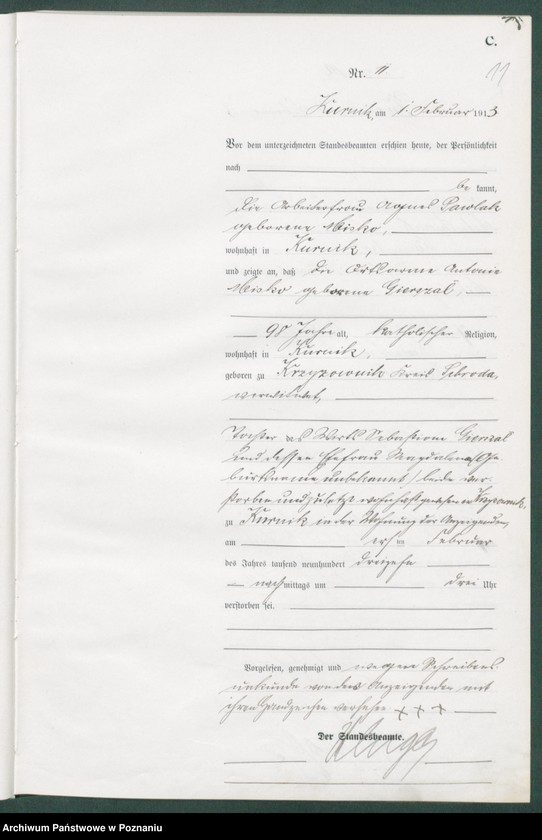 C.
11
Nr. 11
Kurnik, am 1. Februar 1913
Vor dem unterzeichneten Standesbeamten erschien heute, der Persönlichkeit
nach
be kannt,
die Arbeiterfrau Agnes Pawlak
geborene Misko,
wohnhaft in Kurnik,
und zeigte an, daß die Ortsarme Antonie
Misko geborene Gierczal,
98 Jahre alt, katholischer Religion,
wohnhaft in Kurnik,
geboren zu Krzyzownik Kreis Schroda,
verwitwet,
Tochter des Wirts Sebastian Gierczal
und dessen Ehefrau Magdalena (Ge
burtsname unbekannt) beide ver
storben und zuletzt wohnhaft gewesen in Krzyzownik,
zu Kurnik in der Wohnung der Anzeigenden,
am ersten Februar
des Jahres tausend neunhundert dreizehn
nachmittags um drei Uhr
verstorben sei.
Vorgelesen, genehmigt und wegen Schreibens
unkunde von der Anzeigenden mit
ihrem Handzeichen versehen + + +
Der Standesbeamte.
Archiwum Państwowe w Poznaniu